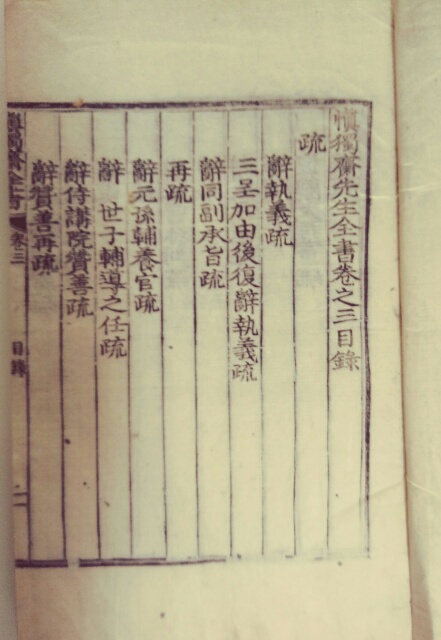 慎獨齋先生全書卷之三目錄
疏
辭執義疏
三呈加由後復辭執義疏
辭同副承旨疏
再疏
辭元孫輔養官疏
辭 世子輔導之任疏
辭侍講院贊善疏
辭贊善再疏
慎獨齋全書 卷三 目錄